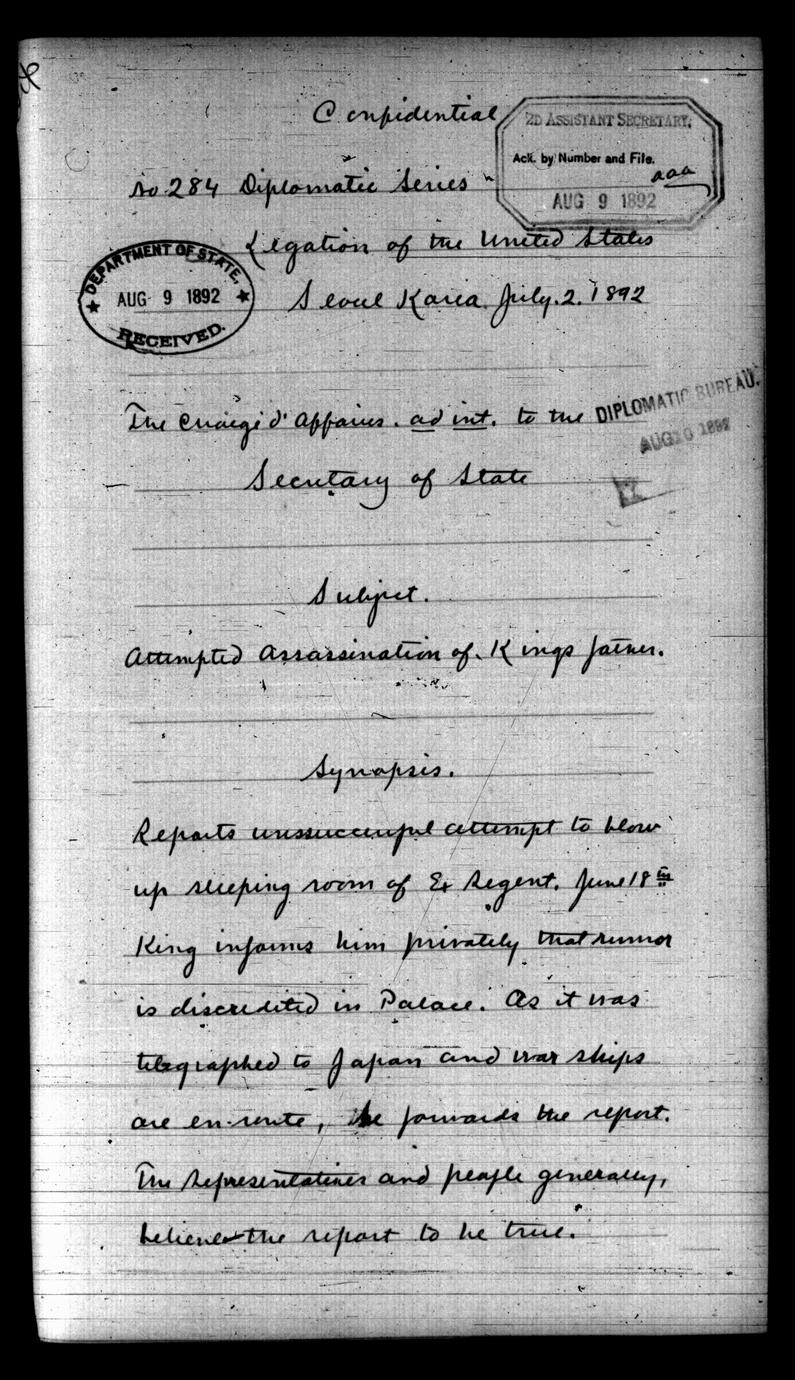 Confidential
2D ASSISTANT SECRETARY,
Ack. by Number and File.
aaa
AUG 9 1892
No 284 Diplomatic Series
Legation of the United States
DEPARTMENT OF STATE,
AUG 9 1892
RECEIVED.
Seoul Korea July. 2. 1892
The Chargé d'Affaires. ad int. to the
DIPLOMATIC BUREAU.
AUG 10 1892
Secretary of State
Subject.
Attempted Assassination of Kings father.
Synopsis.
Reports unsuccessful attempt to blow
up sleeping room of Ex Regent. June 18th
King informs him privately that rumor
is discredited in Palace. As it was
telegraphed to Japan and war ships
are en-route, he forwards the report.
The Representatives and people generally,
believe the report to be true.